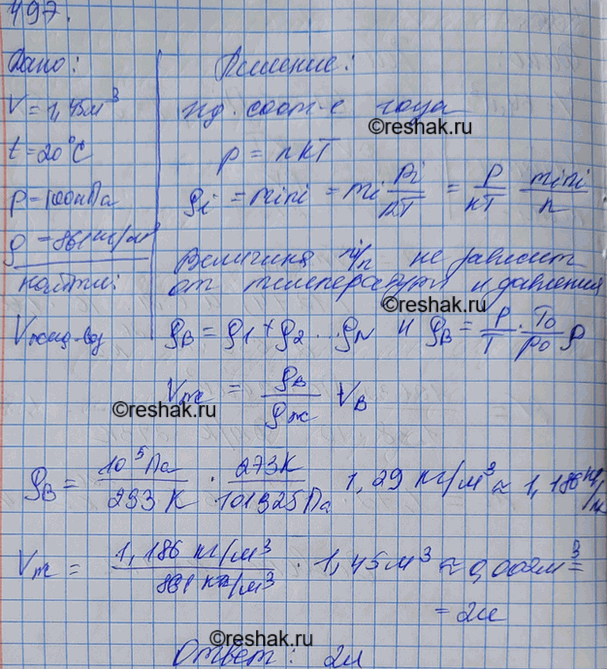 497.
Дано:
V = 1,45м³
t = 20°C
p = 100кПа
ρ = 861 кг/м³
найти:
Vжид-воз
Решение:
ур. сост-е газа
©reshak.ru
p = nkT
ρi = mini = mi pi/kT = p/kT mini/n
Величина ni/n не зависит
от температуры и давления
©reshak.ru
ρв = ρ1 + ρ2 ... ρN и ρв = p/T · T0/p0 ρ
Vж = ρв/ρж Vв
©reshak.ru
ρв = 10⁵Па/293К · 273К/101325Па 1,29 кг/м³ ≈ 1,186кг/м
Vж = 1,186 кг/м³/861 кг/м³ · 1,45м³ ≈ 0,002м³ =
= 2л
©reshak.ru
Ответ: 2л